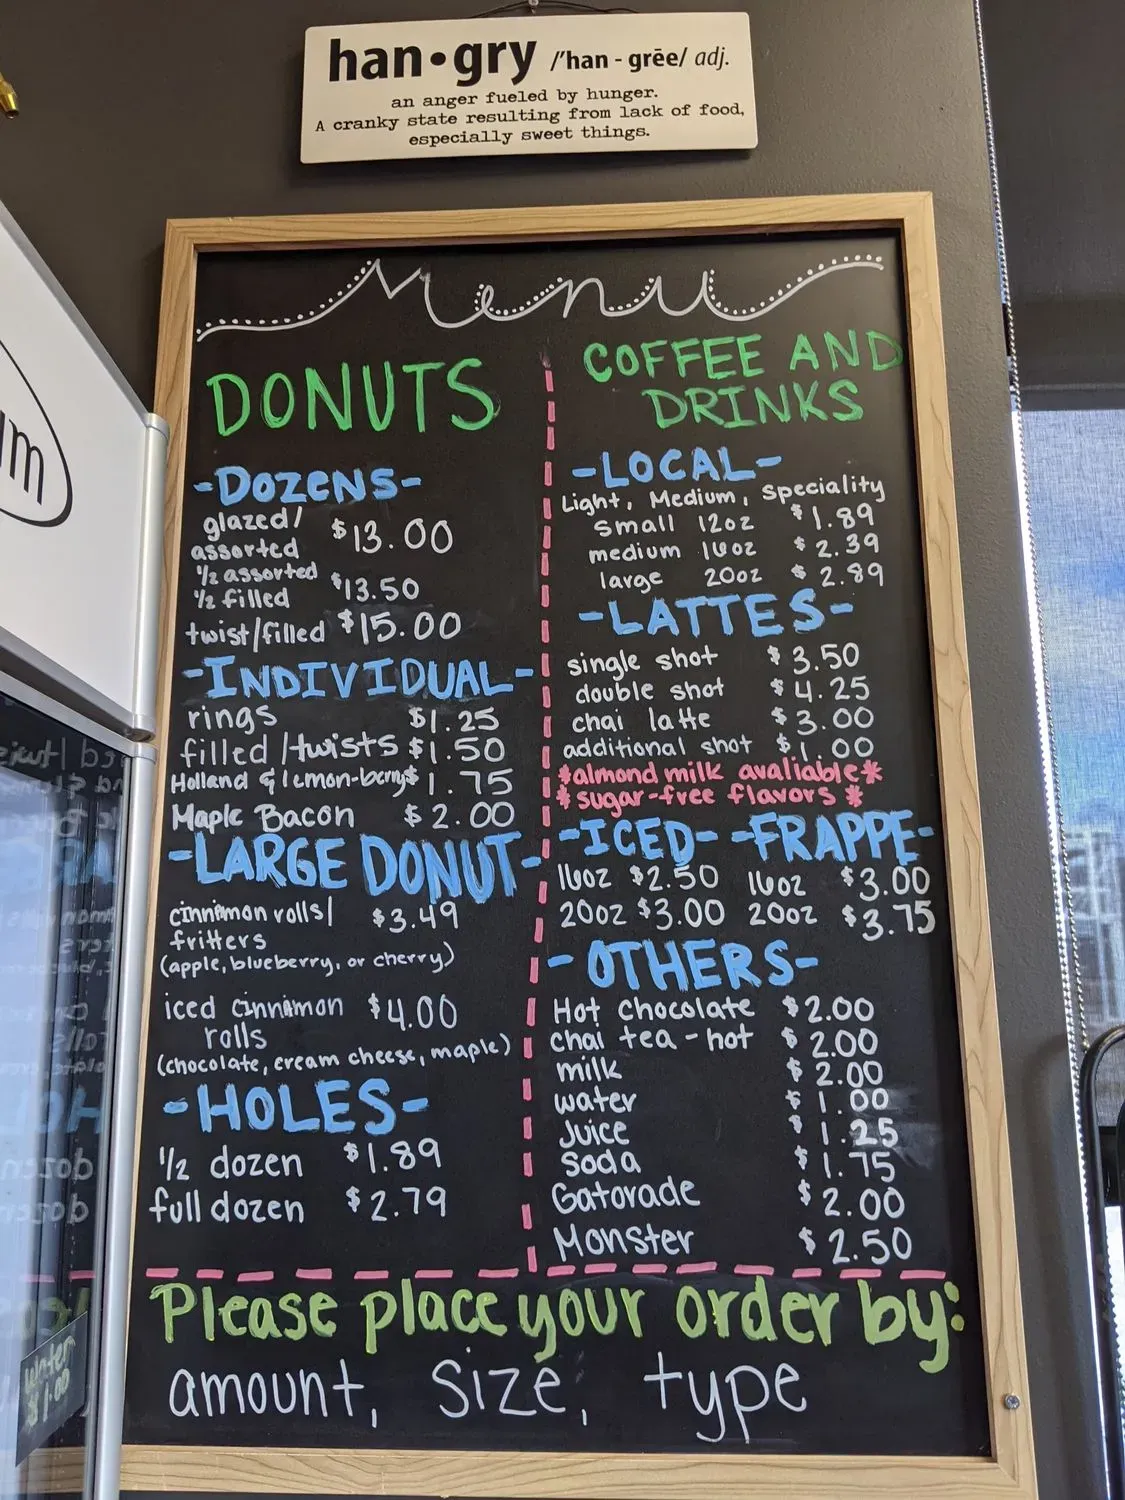 han•gry /'han - grēe/ adj.
an anger fueled by hunger.
A cranky state resulting from lack of food,
especially sweet things.
Menu
DONUTS
-DOZENS-
glazed/
assorted $13.00
1/2 assorted
1/2 filled $13.50
twist/filled $15.00
-INDIVIDUAL-
rings $1.25
filled/twists $1.50
Holland & lemon-berry $1.75
Maple Bacon $2.00
-LARGE DONUT-
cinnamon rolls/ $3.49
fritters
(apple, blueberry, or cherry)
iced cinnamon $4.00
rolls
(chocolate, cream cheese, maple)
-HOLES-
1/2 dozen $1.89
full dozen $2.79
COFFEE AND
DRINKS
-LOCAL-
Light, Medium, Speciality
small 12oz $1.89
medium 16oz $2.39
large 20oz $2.89
-LATTES-
single shot $3.50
double shot $4.25
chai latte $3.00
additional shot $1.00
*almond milk avaliable*
*sugar-free flavors*
-ICED- -FRAPPE-
16oz $2.50 16oz $3.00
20oz $3.00 20oz $3.75
-OTHERS-
Hot Chocolate $2.00
chai tea-hot $2.00
milk $2.00
water $1.00
Juice $1.25
Soda $1.75
Gatorade $2.00
Monster $2.50
Please place your order by:
amount, size, type
um
Water
$1.00